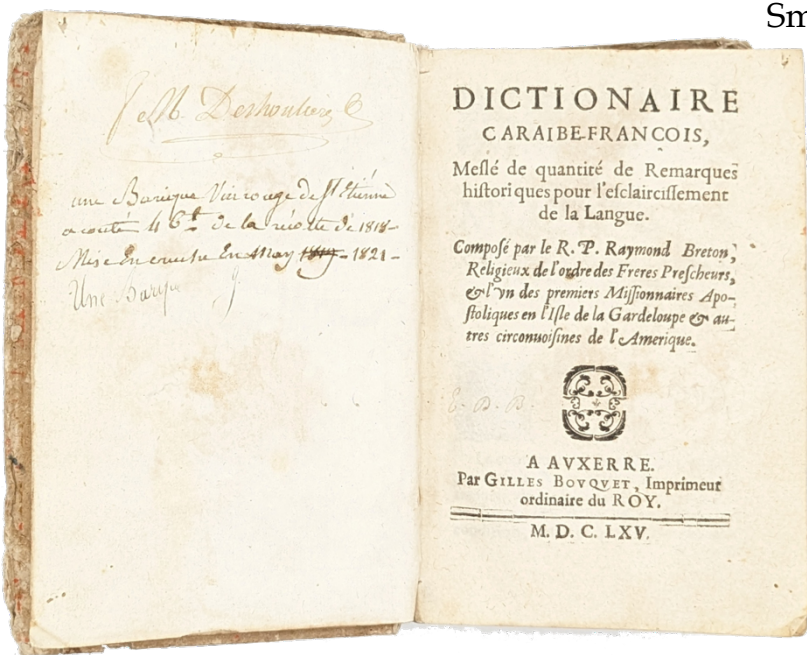 Sm
Deshoulieres
une Barique Vin rouge de St Etienne
a couté 46 de la récolte de 1818 -
Mise en cruche En May 1819 - 1821 -
Une Barique
DICTIONAIRE
CARAIBE-FRANCOIS,
Meslé de quantité de Remarques
historiques pour l'esclaircissement
de la Langue.
Composé par le R. P. Raymond Breton,
Religieux de l'ordre des Freres Prescheurs,
& l'vn des premiers Missionnaires Apo-
stoliques en l'Isle de la Gardeloupe & au-
tres circonuoisines de l'Amerique.
E. D. B.
A AVXERRE.
Par GILLES BOVQVET, Imprimeur
ordinaire du ROY.
M. D. C. LXV.